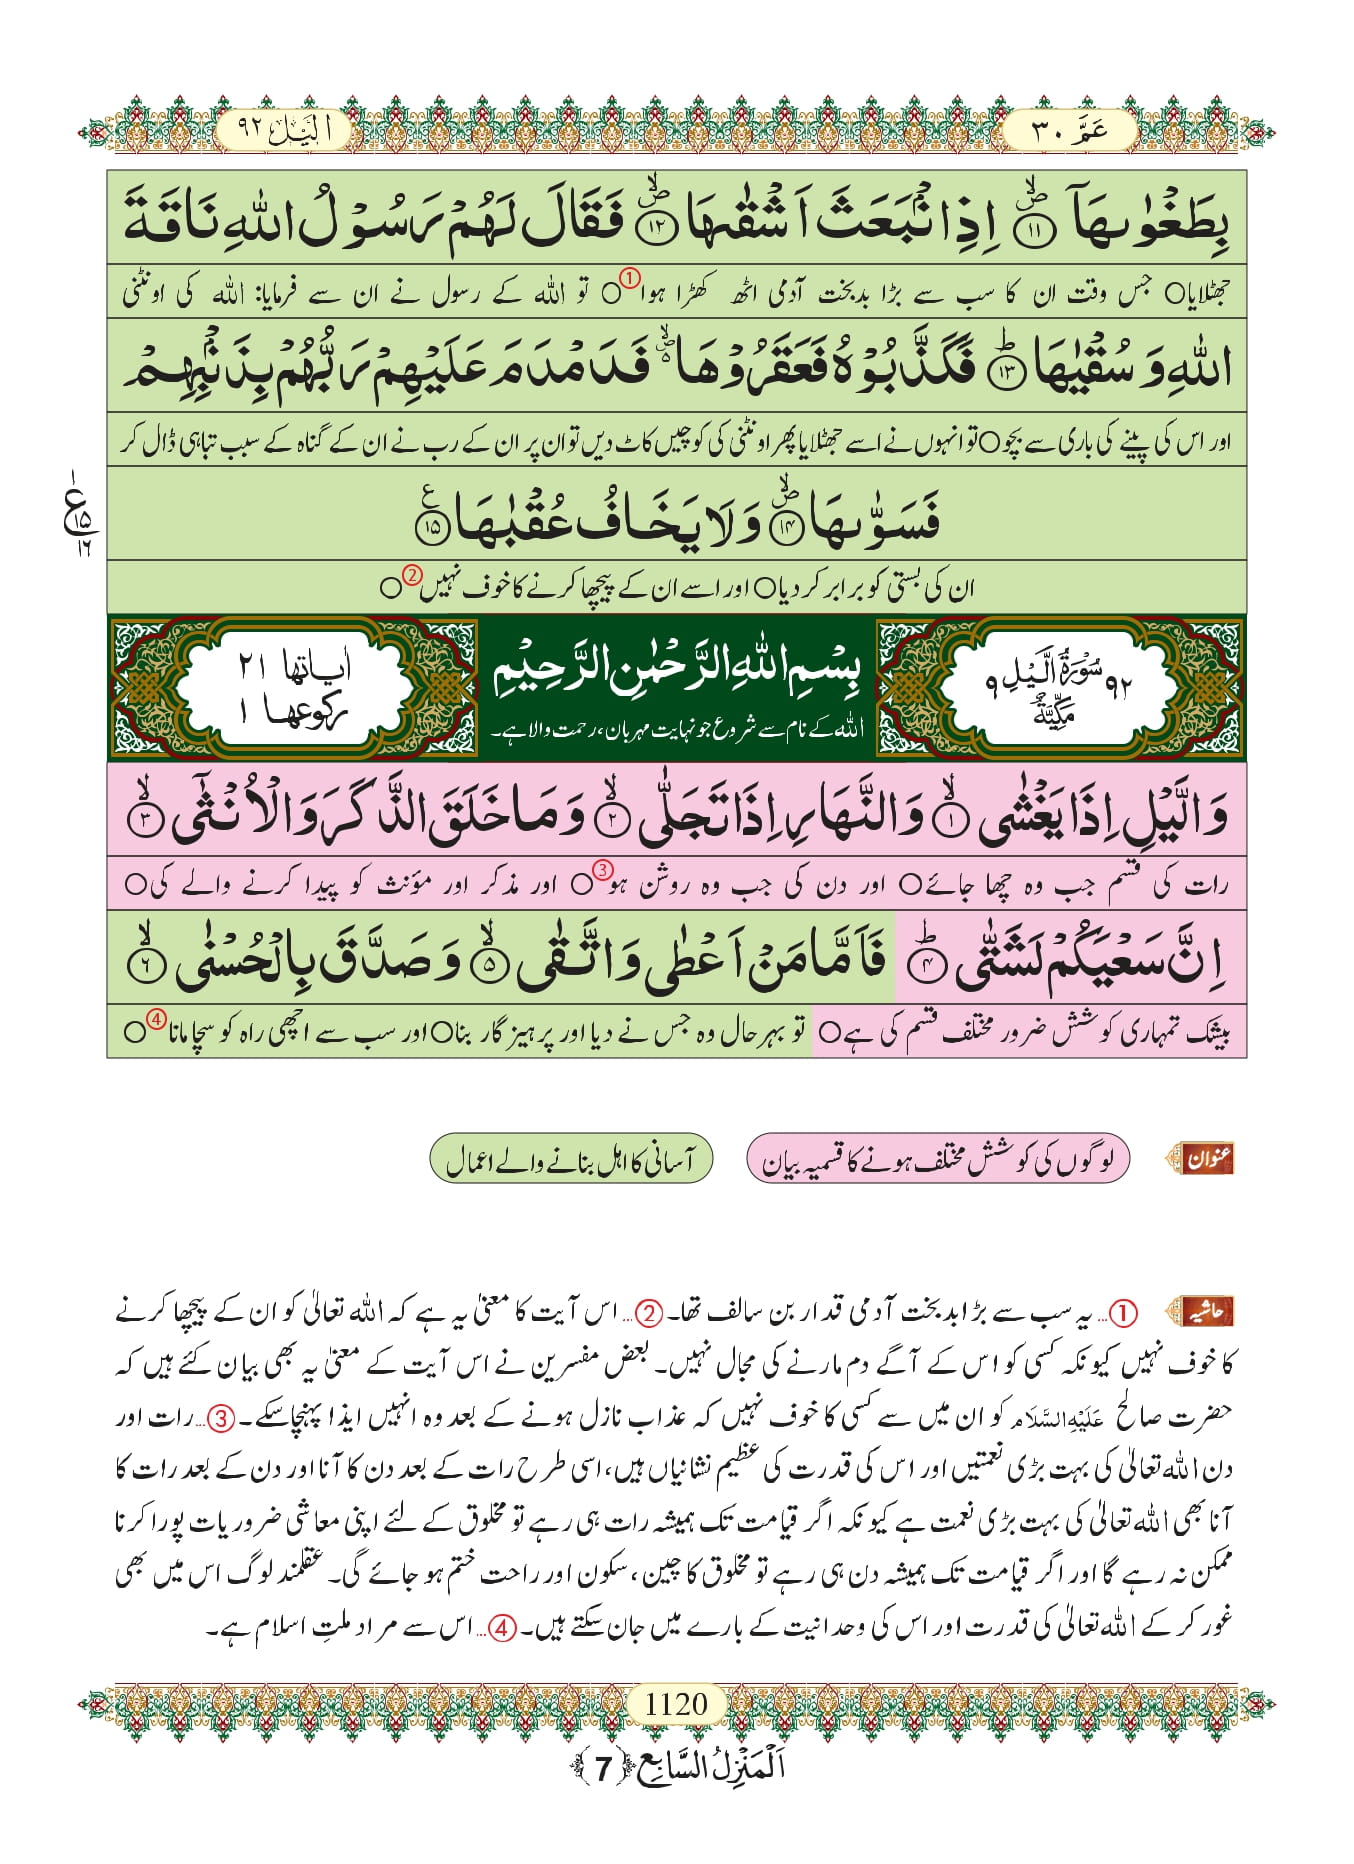 عَمَّ ٣٠
الَّيْل ٩٢
بِطَغْوٰىهَاۤ ۝۱۱۪ۙ اِذِ انْۢبَعَثَ اَشْقٰىهَا ۝۱۲۪ۙ فَقَالَ لَهُمْ رَسُوْلُ اللّٰهِ نَاقَةَ
جھٹلایا○ جس وقت ان کا سب سے بڑا بدبخت آدمی اٹھ کھڑا ہوا①○ تو اللہ کے رسول نے ان سے فرمایا: اللہ کی اونٹنی
اللّٰهِ وَ سُقْیٰهَا ۝۱۳ؕ فَكَذَّبُوْهُ فَعَقَرُوْهَا ۪ۙ۬ فَدَمْدَمَ عَلَیْهِمْ رَبُّهُمْ بِذَنْۢبِهِمْ
اور اس کی پینے کی باری سے بچو○ تو انہوں نے اسے جھٹلایا پھر اونٹنی کی کوچیں کاٹ دیں تو ان پر ان کے رب نے ان کے گناہ کے سبب تباہی ڈال کر
فَسَوّٰىهَا ۝۱۴۪ۙ وَ لَا یَخَافُ عُقْبٰهَا ۝۱۵ع
ع ۱ ۱۵ ۱۶
ان کی بستی کو برابر کردیا○ اور اسے ان کے پیچھا کرنے کا خوف نہیں②○
٩٢ سُوْرَةُ الَّيْلِ مَكِّيَّةٌ ٩
بِسْمِ اللّٰهِ الرَّحْمٰنِ الرَّحِیْمِ
اللہ کے نام سے شروع جو نہایت مہربان، رحمت والا ہے۔
اٰیاتها ٢١
رکوعها ١
وَ الَّیْلِ اِذَا یَغْشٰى ۝۱ۙ وَ النَّهَارِ اِذَا تَجَلّٰى ۝۲ۙ وَ مَا خَلَقَ الذَّكَرَ وَ الْاُنْثٰۤى ۝۳ۙ
رات کی قسم جب وہ چھا جائے○ اور دن کی جب وہ روشن ہو③○ اور مذکر اور مؤنث کو پیدا کرنے والے کی○
اِنَّ سَعْیَكُمْ لَشَتّٰى ۝۴ؕ فَاَمَّا مَنْ اَعْطٰى وَ اتَّقٰى ۝۵ۙ وَ صَدَّقَ بِالْحُسْنٰى ۝۶ۙ
بیشک تمہاری کوشش ضرور مختلف قسم کی ہے○ تو بہرحال وہ جس نے دیا اور پرہیزگار بنا○ اور سب سے اچھی راہ کو سچا مانا④○
عنوان لوگوں کی کوشش مختلف ہونے کا قسمیہ بیان آسانی کا اہل بنانے والے اعمال
حاشیہ ①... یہ سب سے بڑا بدبخت آدمی قدار بن سالف تھا۔ ②... اس آیت کا معنیٰ یہ ہے کہ اللہ تعالیٰ کو ان کے پیچھا کرنے
کا خوف نہیں کیونکہ کسی کو اس کے آگے دم مارنے کی مجال نہیں۔ بعض مفسرین نے اس آیت کے معنیٰ یہ بھی بیان کئے ہیں کہ
حضرت صالح عَلَيْهِ السَّلَام کو ان میں سے کسی کا خوف نہیں کہ عذاب نازل ہونے کے بعد وہ انہیں ایذا پہنچا سکے۔ ③... رات اور
دن اللہ تعالیٰ کی بہت بڑی نعمتیں اور اس کی قدرت کی عظیم نشانیاں ہیں، اسی طرح رات کے بعد دن کا آنا اور دن کے بعد رات کا
آنا بھی اللہ تعالیٰ کی بہت بڑی نعمت ہے کیونکہ اگر قیامت تک ہمیشہ رات ہی رہے تو مخلوق کے لئے اپنی معاشی ضروریات پورا کرنا
ممکن نہ رہے گا اور اگر قیامت تک ہمیشہ دن ہی رہے تو مخلوق کا چین، سکون اور راحت ختم ہو جائے گی۔ عقلمند لوگ اس میں بھی
غور کر کے اللہ تعالیٰ کی قدرت اور اس کی وحدانیت کے بارے میں جان سکتے ہیں۔ ④... اس سے مراد ملتِ اسلام ہے۔
1120
اَلْمَنْزِلُ السَّابِع ﴿7﴾